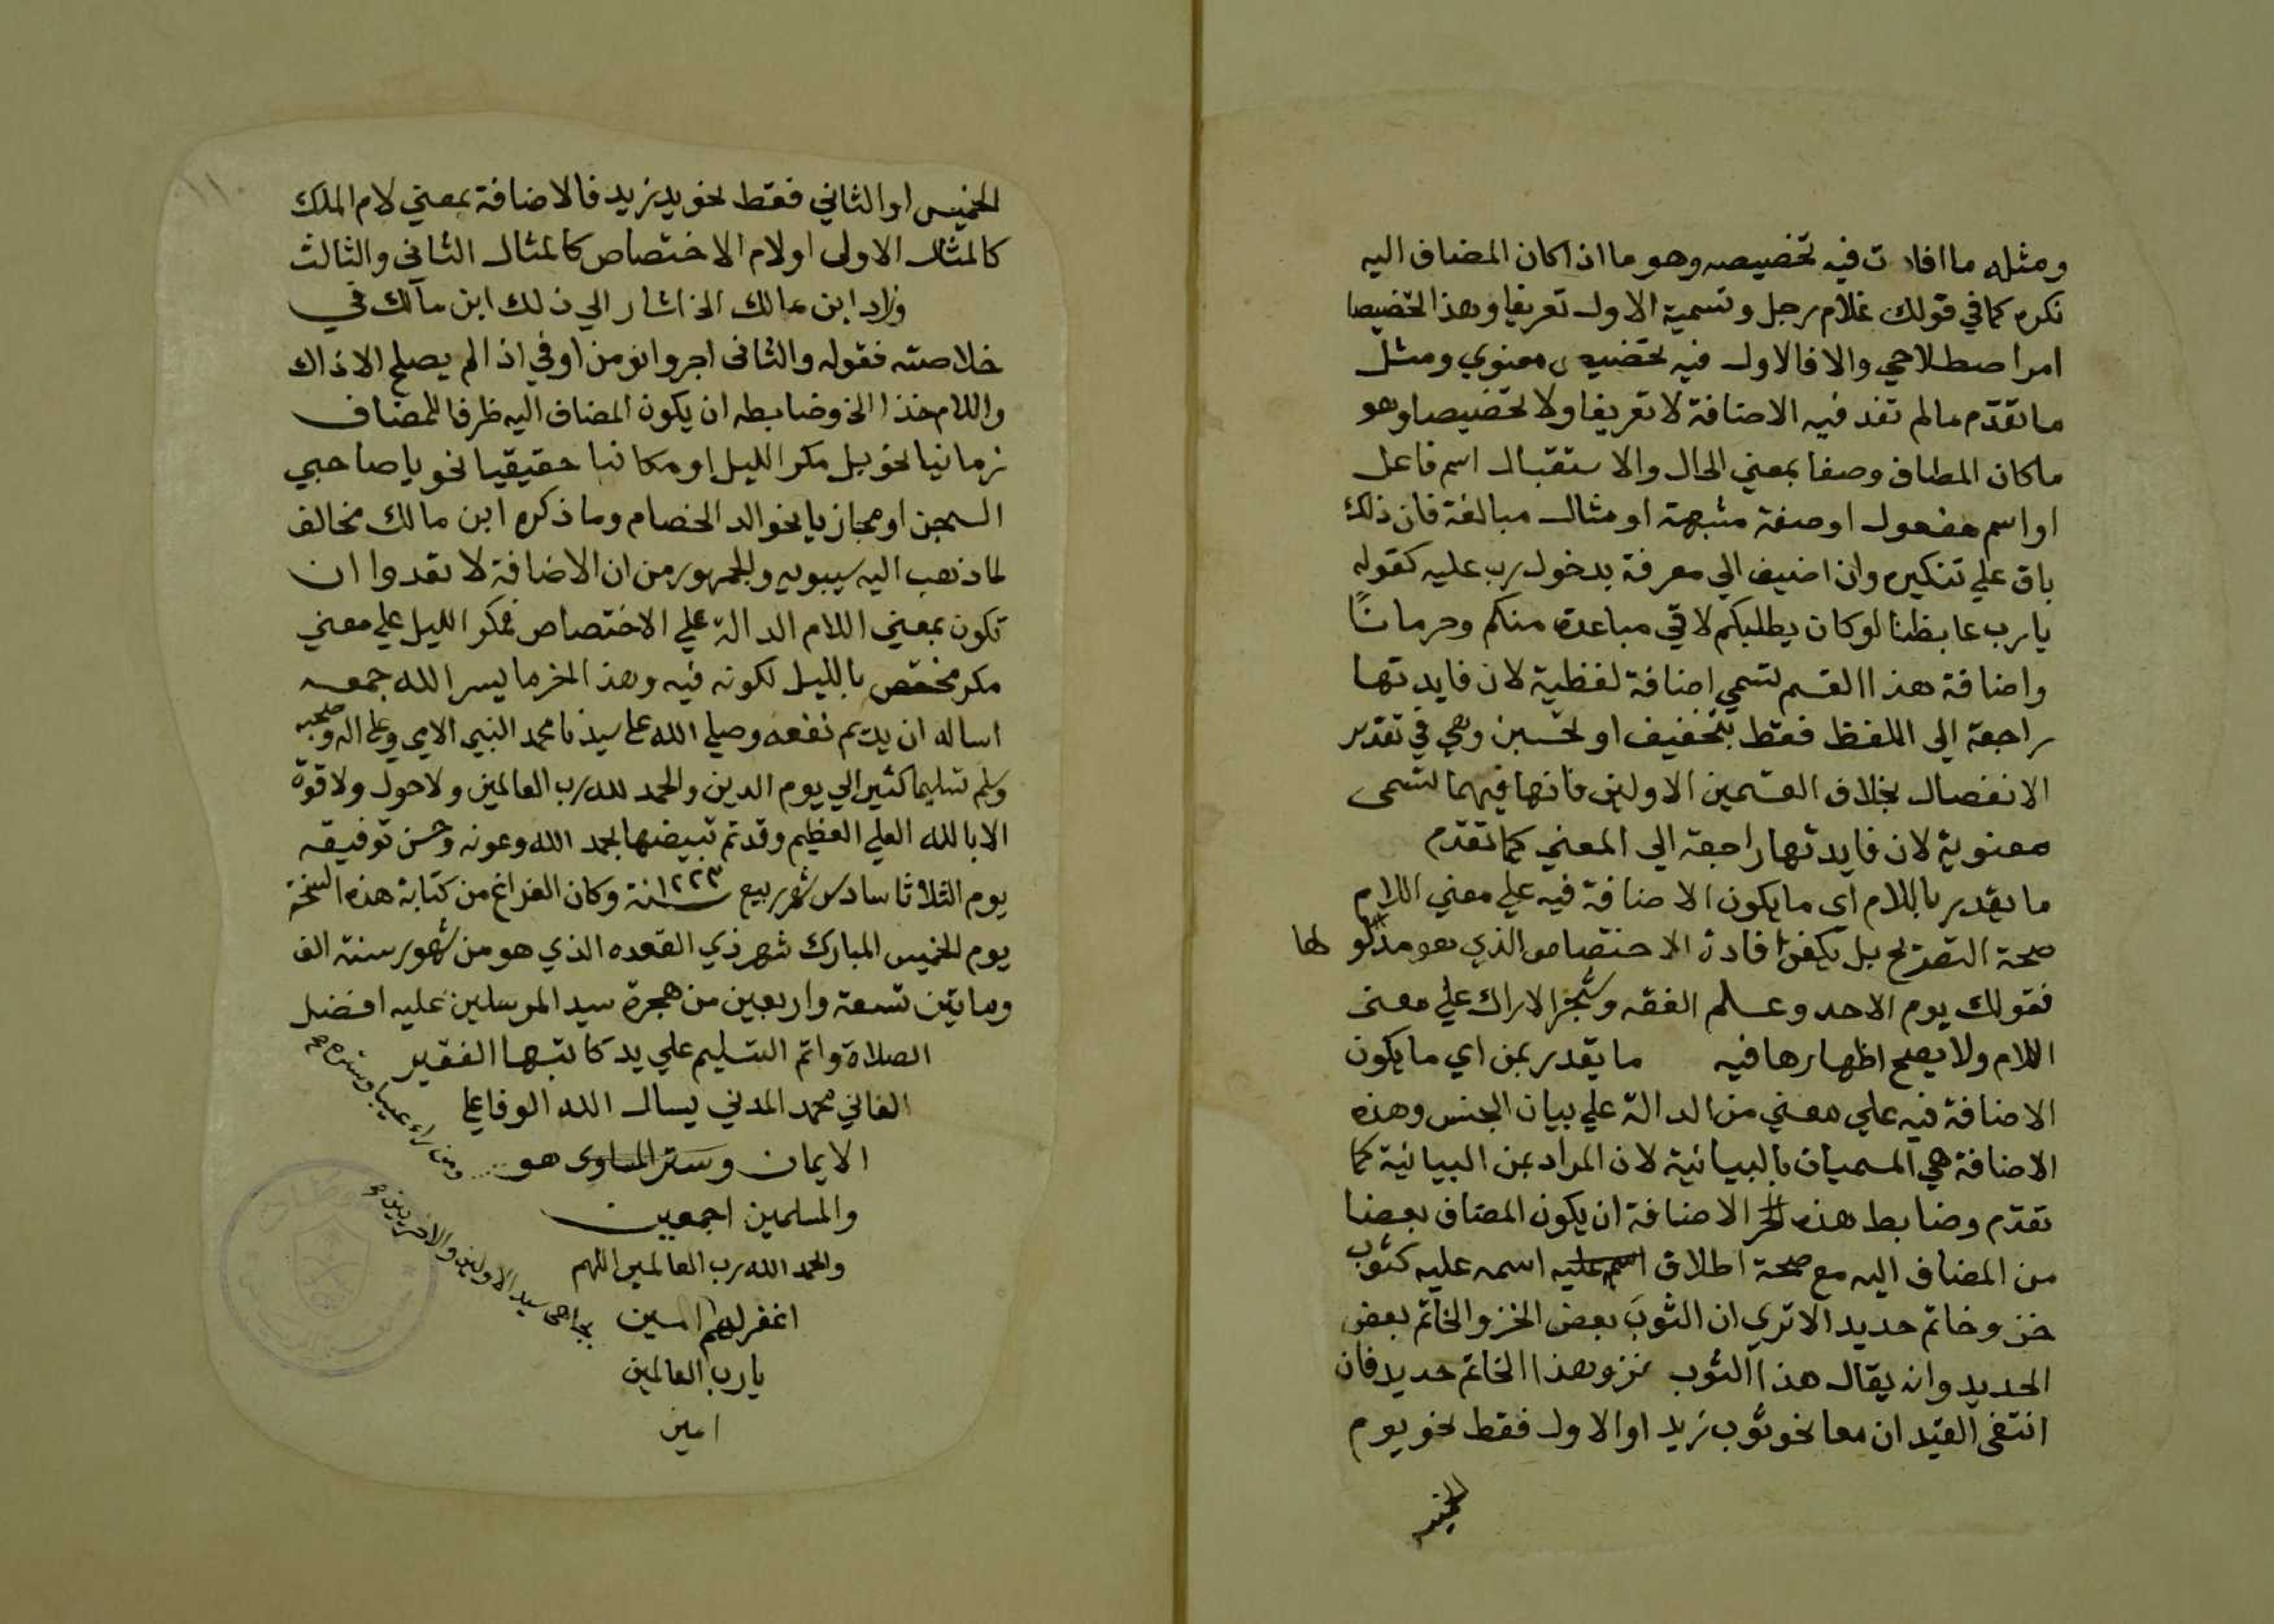 ومثله ما افادت فيه تخصيصه وهو ما اذا كان المضاف اليه
نكره كما في قولك غلام رجل وتسمية الاول تعريفا وهذا تخصيصا
امر اصطلاحي والا فالاول فيه تخصيص معنوي ومثل
ما تقدم ما لم تفد فيه الاضافة لا تعريفا ولا تخصيصا وهو
ما كان المضاف وصفا بمعني الحال والاستقبال اسم فاعل
او اسم مفعول او صفة مشبهة او مثال مبالغة فان ذلك
باق علي تنكيره وان اضيف الي معرفة بدخول رب عليه كقوله
يا رب غابطنا لو كان يطلبكم لاقي مباعدة منكم وحرمانًا
واضافة هذا القسم تسمي اضافة لفظية لان فايدتها
راجعة الي اللفظ فقط بتخفيف او تحسين وهي في تقدير
الانفصال بخلاف القسمين الاولين فانها فيهما تسمى
معنوية لان فايدتها راجعة الي المعني كما تقدم
ما يقدر باللام اي ما يكون الاضافة فيه علي معني اللام
صحة التصريح بل يكفي افادة الاختصاص الذي هو مدلولها
فقولك يوم الاحد وعلم الفقه وشجر الاراك علي معنى
اللام ولا يصح اظهارها فيه ما يقدر بمن اي ما يكون
الاضافة فيه علي معني من الدالة علي بيان الجنس وهذه
الاضافة هي المسميات بالبيانية لان المراد بمن البيانية كما
تقدم وضابط هذه الاضافة ان يكون المضاف بعضا
من المضاف اليه مع صحة اطلاق اسمه عليه كثوب
خز وخاتم حديد الا تري ان الثوبَ بعض الخز والخاتم بعض
الحديد وانه يقال هذا الثوب خز وهذا الخاتم حديد فان
انتفى القيدان معا نحو ثوب زيد او الاول فقط نحو يوم
الخميس
١١
الخميس او الثاني فقط نحو يد زيد فالاضافة بمعني لام الملك
كالمثال الاولى او لام الاختصاص كالمثال الثاني والثالث
وزاد ابن مالك الخ اشار الي ذلك ابن مالك في
خلاصته فقوله والثاني اجرر وانو من او في اذا لم يصلح الا ذاك
واللام خذا الخ وضابطه ان يكون المضاف اليه ظرفا للمضاف
زمانيا نحو بل مكر الليل او مكانيا حقيقيا نحو يا صاحبي
السجن او مجازيا نحو الد الخصام وما ذكره ابن مالك مخالف
لما ذهب اليه سيبويه والجمهور من ان الاضافة لا تعدوا ان
تكون بمعني اللام الدالة علي الاختصاص فمكر الليل علي معني
مكر مختص بالليل لكونه فيه وهذا اخر ما يسر الله جمعه
اساله ان يديم نفعه وصلي الله علي سيدنا محمد النبي الامي وعلى اله وصحبه
وسلم تسليما كثيرا الي يوم الدين والحمد لله رب العالمين ولا حول ولا قوة
الا بالله العلي العظيم وقد تم تبييضها بحمد الله وعونه وحسن توفيقه
يوم الثلاثا سادس شهر ربيع سنة ١٢٢٣ وكان الفراغ من كتابة هذه النسخة
يوم الخميس المبارك شهر ذي القعده الذي هو من شهور سنة الف
وماتين تسعة واربعين من هجرة سيد المرسلين عليه افضل
الصلاة واتم التسليم علي يد كاتبها الفقير
الفاني محمد المدني يسال الله الوفا علي
الايمان وستر المساوى هو
والمسلمين اجمعين
والحمد الله رب العالمين اللهم
اغفر لهم امين
يا رب العالمين
امين
ومن راء عيبا وستره
بجاهي سيد الاولين والاخرين